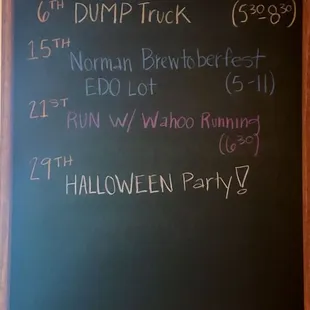 6TH DUMP Truck (530-830)
15TH Norman Brewtoberfest
EDO Lot (5-11)
21ST RUN W/ Wahoo Running
(630)
29TH
HALLOWEEN Party!